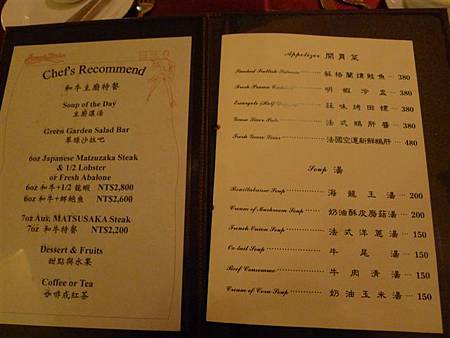 Chef's Recommend
和牛主廚特餐
Soup of the Day
主廚濃湯
Green Garden Salad Bar
翠綠沙拉吧
6oz Japanese Matzuzaka Steak
& 1/2 Lobster
or Fresh Abalone
6oz 和牛+1/2 龍蝦 NT$2,800
6oz 和牛+鮮鮑魚 NT$2,600
7oz Aus. MATSUSAKA Steak
7oz 和牛特餐 NT$2,200
Dessert & Fruits
甜點與水果
Coffee or Tea
咖啡或紅茶
Appetizer 開胃菜
Smoked Scottish Salmon 蘇格蘭燻鮭魚 380
Fresh Prawn 明蝦冷盅 380
Escargots (Half 蒜味烤田螺 380
Goose Liver 法式鵝肝醬 380
Fresh Goose Liver 法國空運新鮮鵝肝 480
Soup 湯
Bouillabaisse Soup 海龍王湯 200
Cream of Mushroom Soup 奶油酥皮磨菇湯 200
French Onion Soup 法式洋蔥湯 150
Ox-tail Soup 牛尾湯 150
Beef Consomme 牛肉清湯 150
Cream of Corn Soup 奶油玉米湯 150